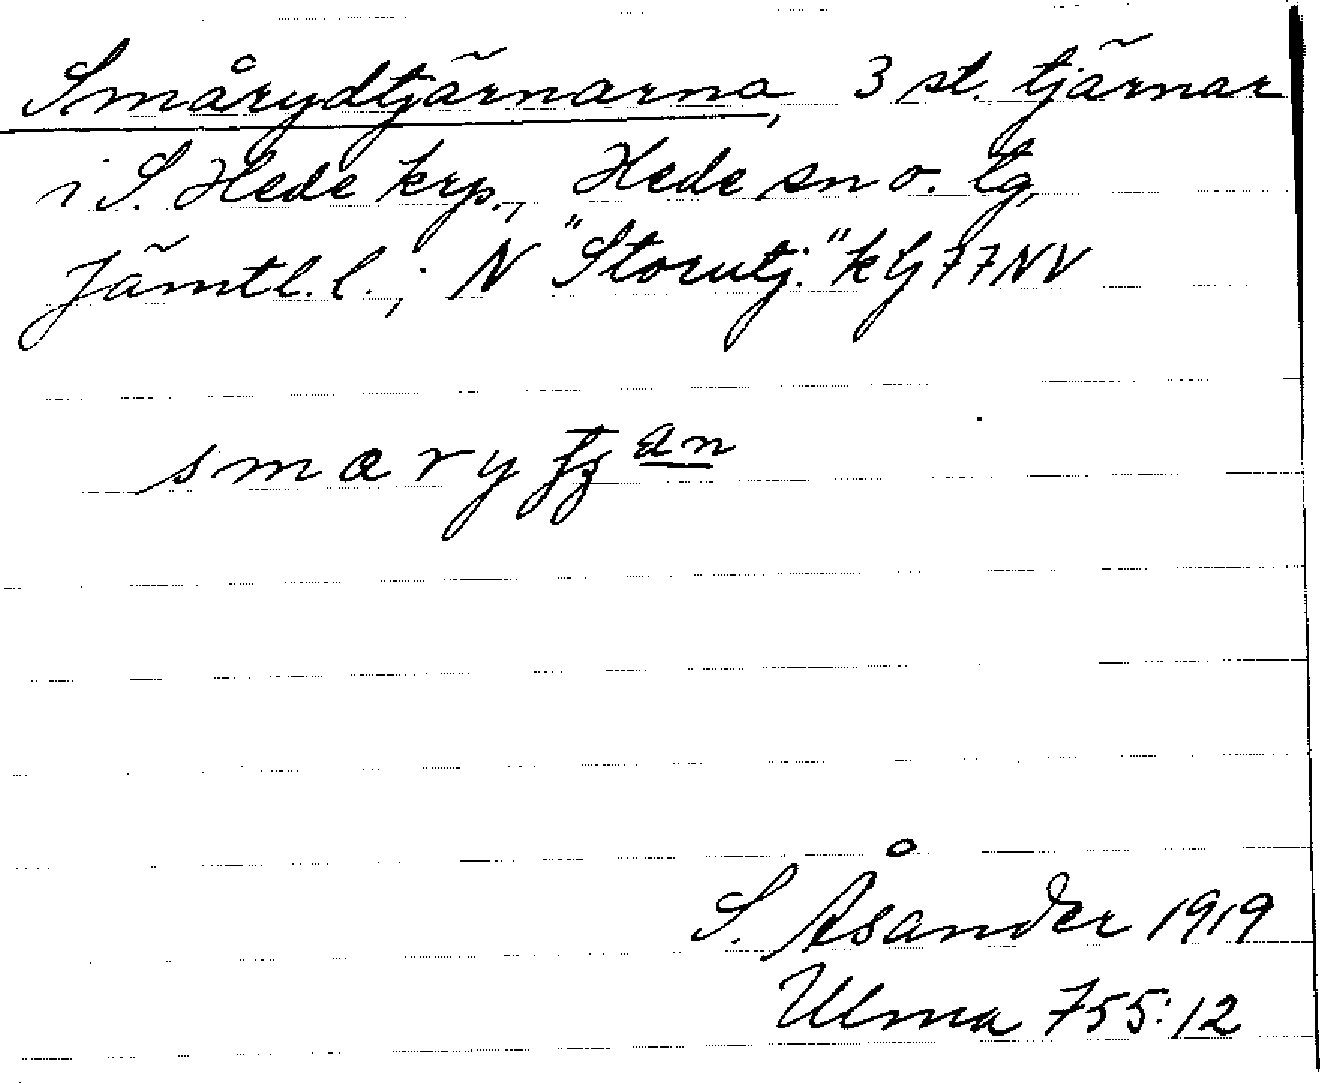 Smårydtjärnarna, 3 st. tjärnar
i S. Hede krp., Hede sn o. tg
Jämtl. l.; N "Storutj." k G 77 NV
S. Åsander 1919
Ulma 755:12